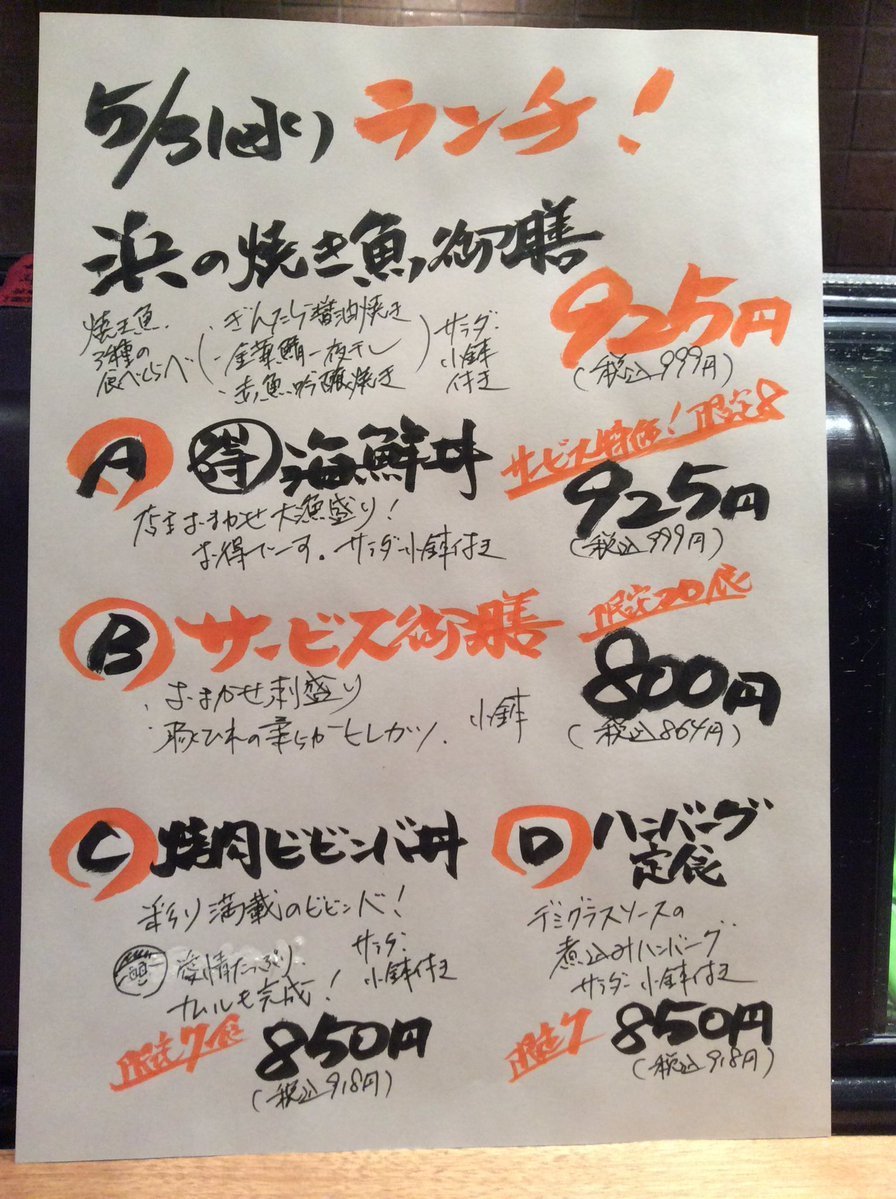 5/31(水) ランチ!
浜の焼き魚御膳
925円
(税込999円)
焼き魚
3種の
食べくらべ
・ぎんだら醤油焼き
・金華鯖一夜干し
・赤魚吟醸焼き
サラダ・
小鉢
付き
A 得 海鮮丼
サービス特価!限定8
925円
(税込999円)
店主おまかせ大漁盛り!
お得でーす。サラダ・小鉢付き
B サービス御膳
限定20食
800円
(税込864円)
・おまかせ刺盛り
・豚ひれの柔らかーヒレカツ、小鉢
C 焼肉ビビンバ丼
彩り満載のビビンバ!
愛情たっぷり
ナムルも完成!
サラダ・
小鉢付き
限定7食
850円
(税込918円)
D ハンバーグ
定食
デミグラスソースの
煮込みハンバーグ
サラダ・小鉢付き
限定7
850円
(税込918円)